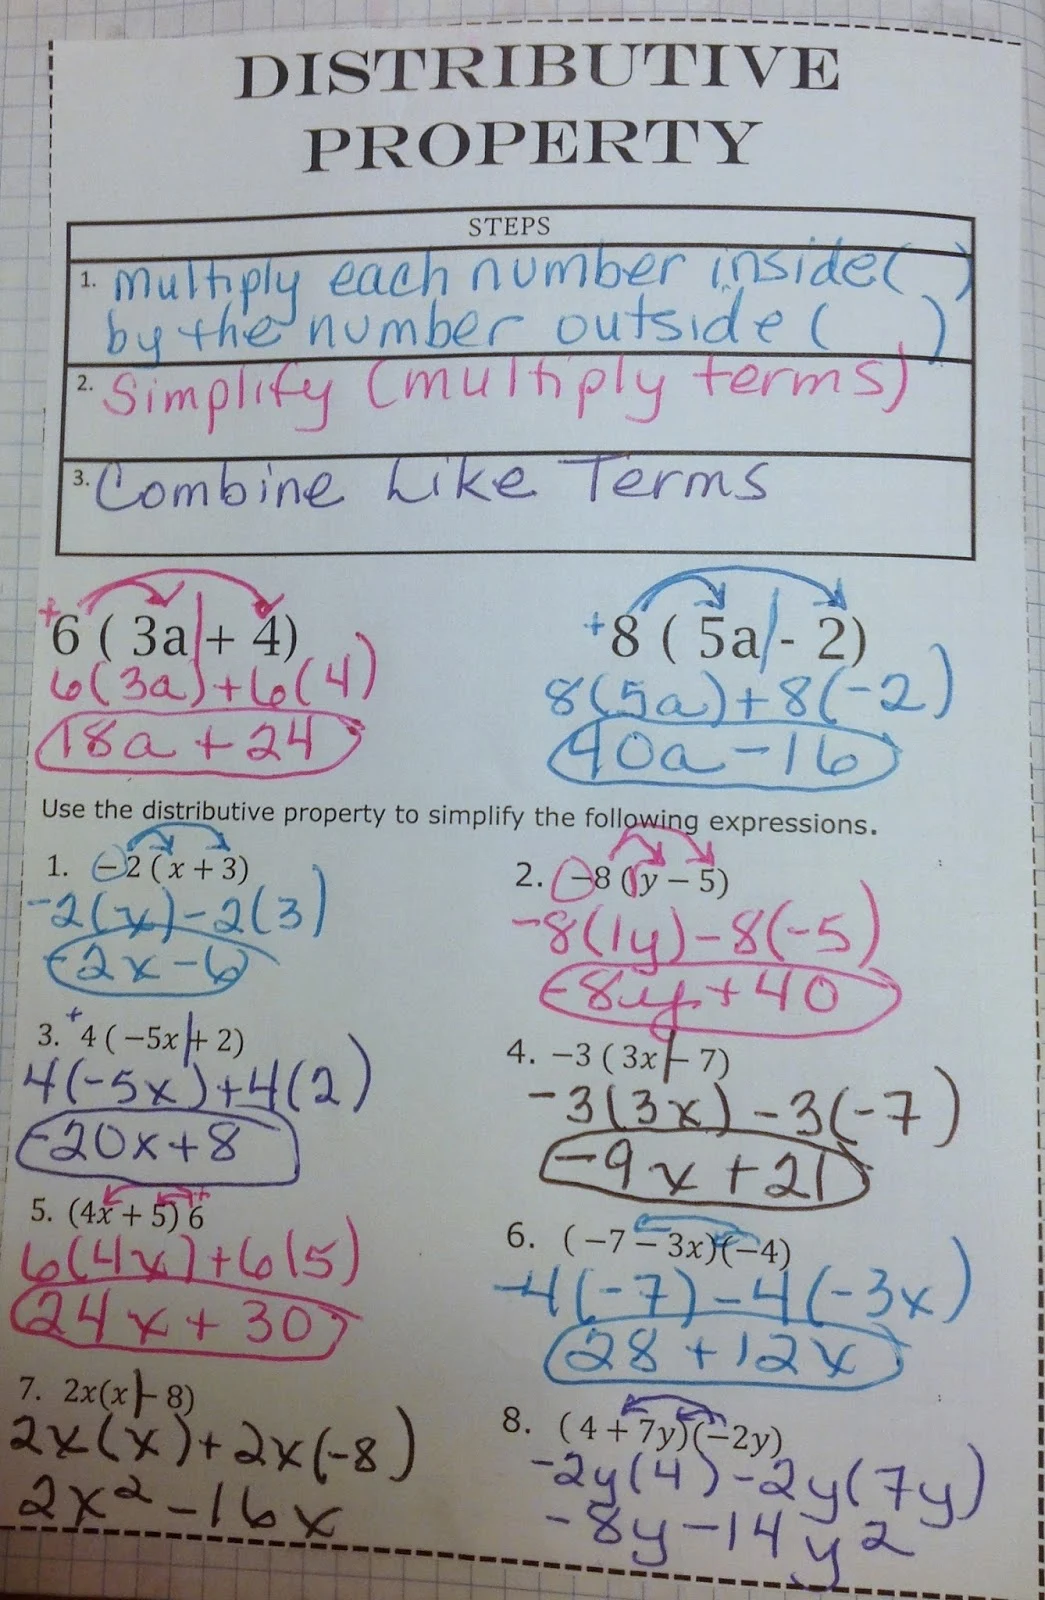 DISTRIBUTIVE
PROPERTY
STEPS
1. Multiply each number inside ( )
by the number outside ( )
2. Simplify (multiply terms)
3. Combine Like Terms
+6 ( 3a + 4)
6(3a)+6(4)
18a + 24
+8 ( 5a - 2)
8(5a)+8(-2)
40a - 16
Use the distributive property to simplify the following expressions.
1. −2 ( x + 3)
-2(x)-2(3)
-2x-6
2. −8 (1y − 5)
-8(1y)-8(-5)
-8y+40
3. +4 ( −5x + 2)
4(-5x)+4(2)
-20x+8
4. −3 ( 3x − 7)
-3(3x)-3(-7)
-9x+21
5. (4x + 5) +6
6(4x)+6(5)
24x+30
6. ( −7 − 3x)(−4)
-4(-7)-4(-3x)
28+12x
7. 2x(x − 8)
2x(x)+2x(-8)
2x²-16x
8. ( 4 + 7y)(−2y)
-2y(4)-2y(7y)
-8y-14y²